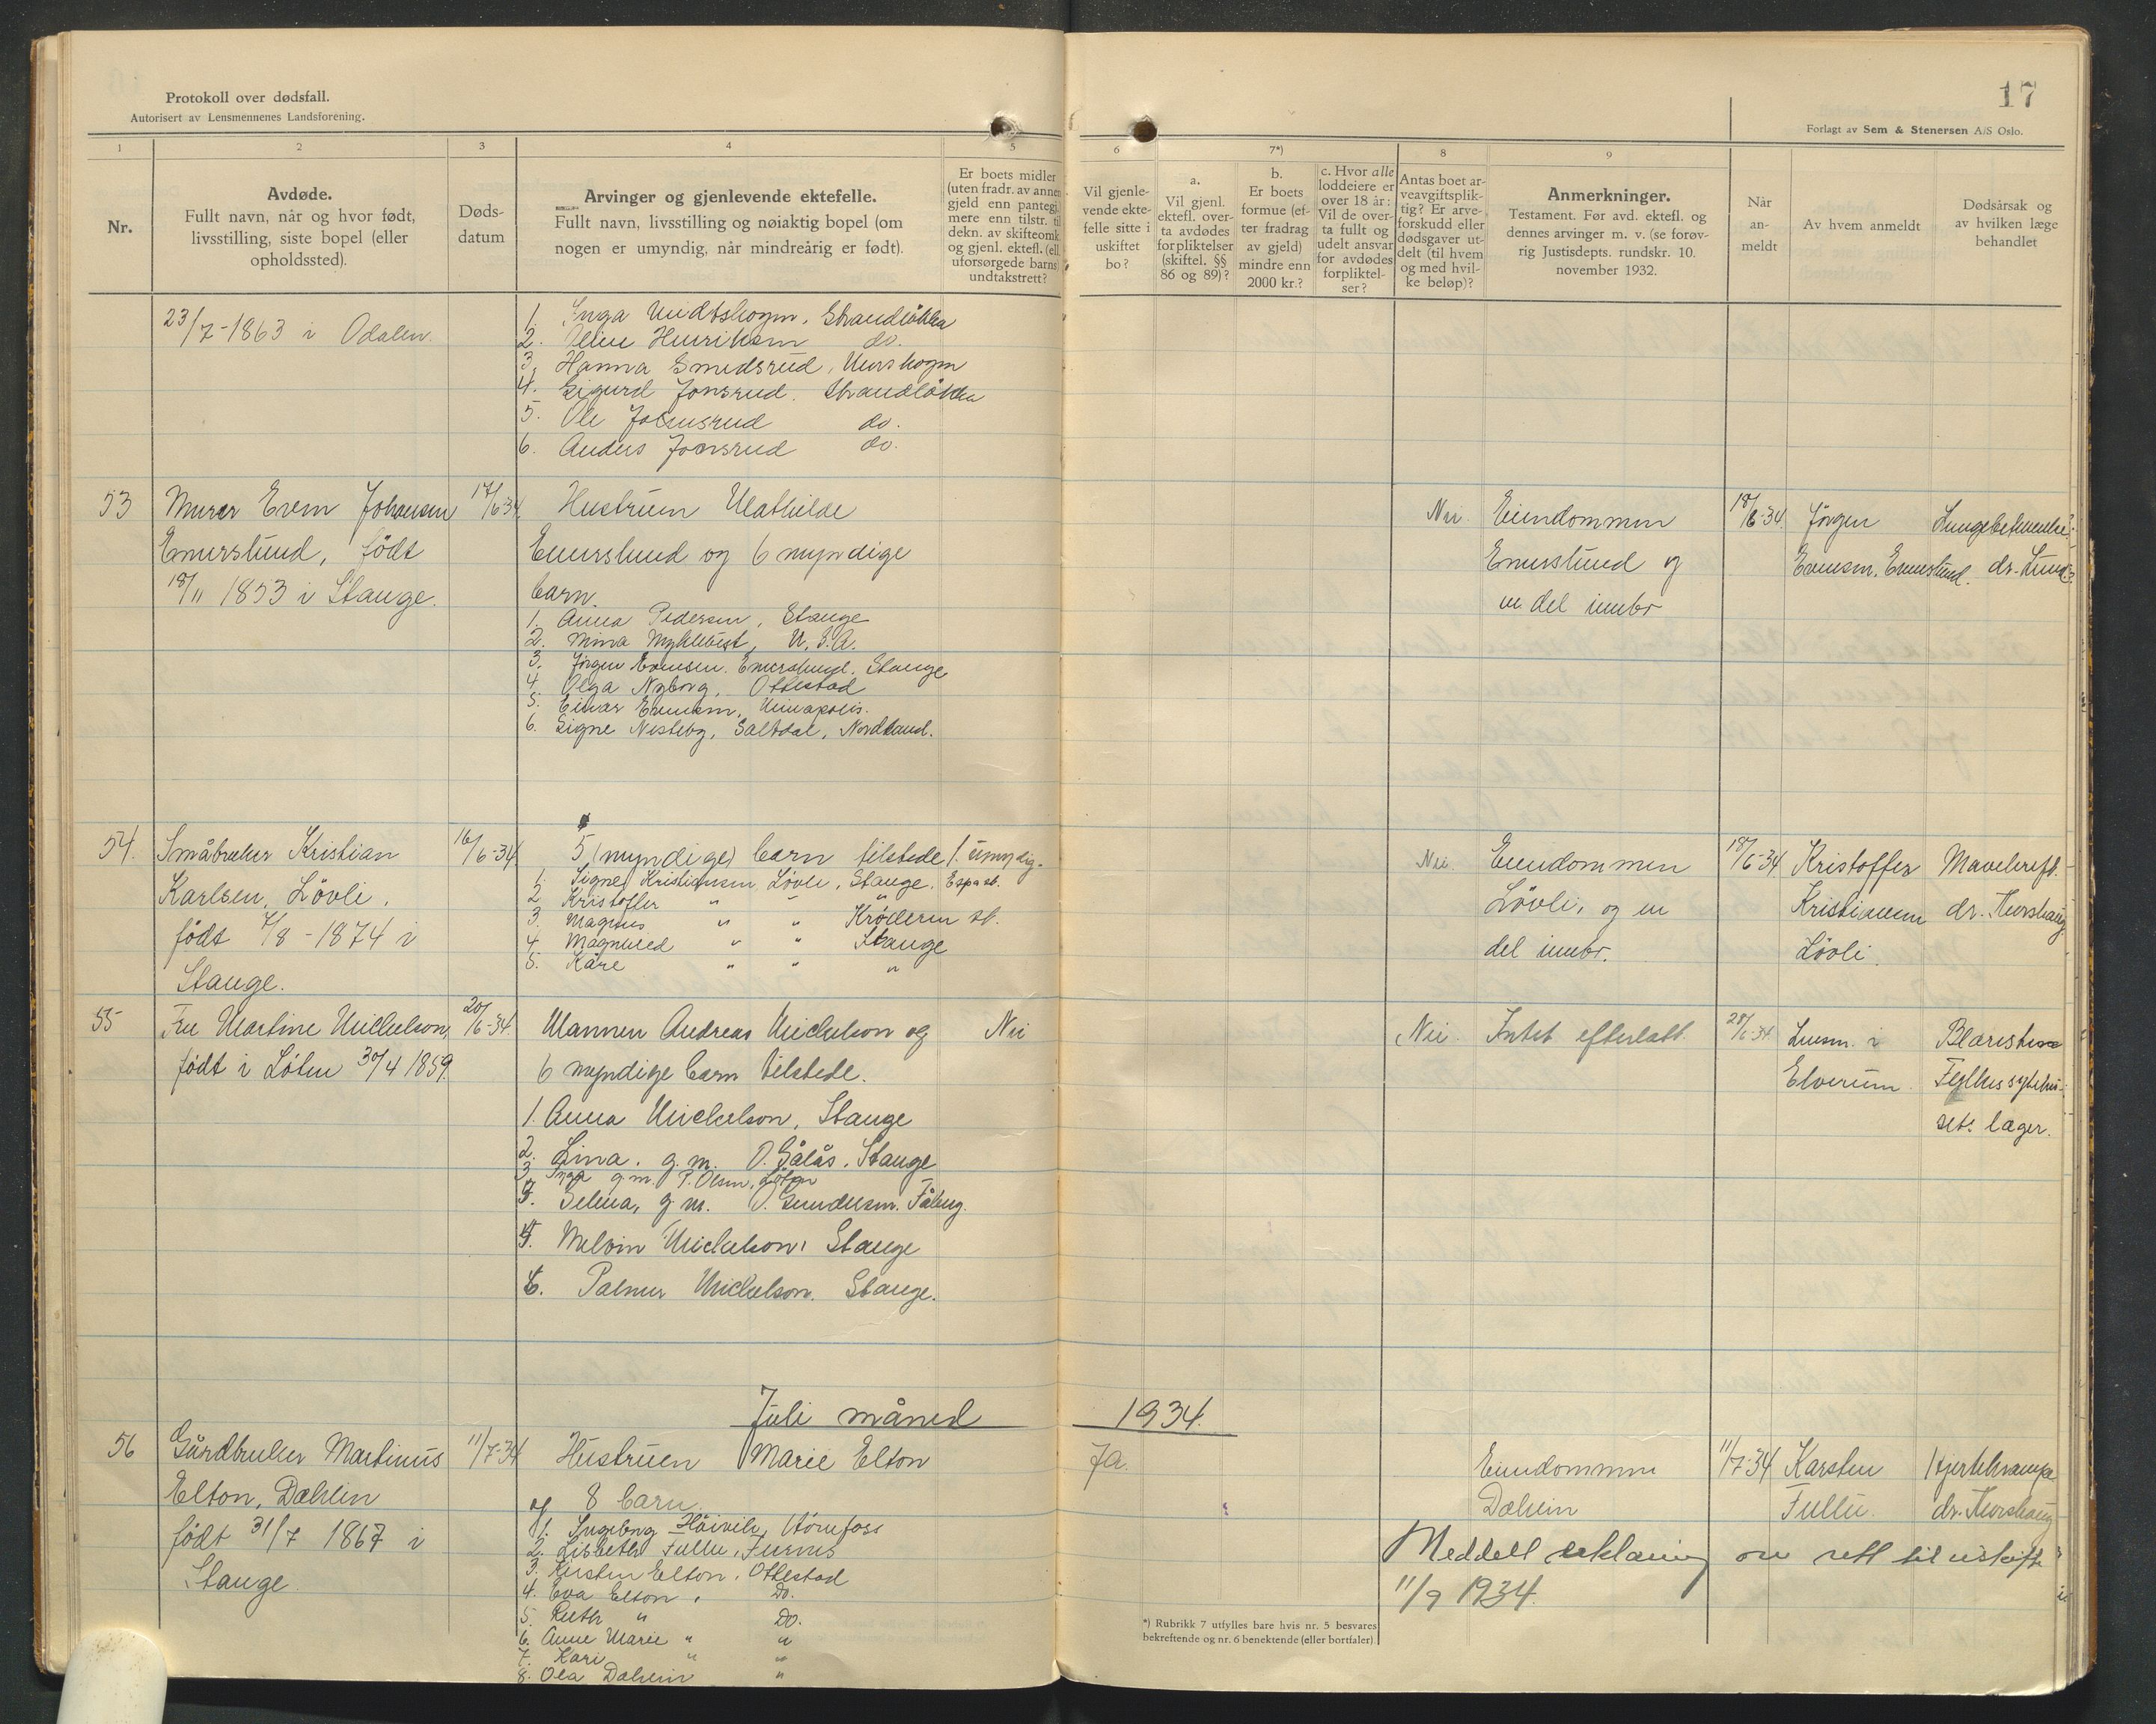 Protokoll over dødsfall.
Autorisert av Lensmennenes Landsforening.
17
Forlagt av Sem & Stenersen A/S Oslo.
1
2
3
4
5
6
7*)
8
9
Nr.
Avdøde.
Fullt navn, når og hvor født,
livsstilling, siste bopel (eller
opholdssted).
Døds-
datum
Arvinger og gjenlevende ektefelle.
Fullt navn, livsstilling og nøiaktig bopel (om
nogen er umyndig, når mindreårig er født).
Er boets midler
(uten fradr. av annen
gjeld enn pantegj.)
mere enn tilstr. til
dekn. av skifteomk.
og gjenl. ektef. (ell.
uforsørgede barns)
undtakstrett?
Vil gjenle-
vende ekte-
felle sitte i
uskiftet
bo?
a.
Vil gjenl.
ektefl. over-
ta avdødes
forpliktelser
(skiftel. §§
86 og 89)?
b.
Er boets
formue (ef-
ter fradrag
av gjeld)
mindre enn
2000 kr.?
c. Hvor alle
loddeiere er
over 18 år:
Vil de over-
ta fullt og
udelt ansvar
for avdødes
forpliktel-
ser?
Antas boet ar-
veavgiftsplik-
tig? Er arve-
forskudd eller
dødsgaver ut-
delt (til hvem
og med hvil-
ke beløp)?
Anmerkninger.
Testament. Før avd. ektefl. og
dennes arvinger m. v. (se forøv-
rig Justisdepts. rundskr. 10.
november 1932.
Når
an-
meldt
Av hvem anmeldt
Dødsårsak og
av hvilken læge
behandlet
23/7-1863 i Odalen.
1. Inga Strandløkka
2. Oline Henriksen do.
3. Hanna Smedsrud,
4. Sigurd Jonsrud. Strandløkka
5. Ole Johnsrud do.
6. Anders Jonsrud do.
53
Murer Even Johansen
Emerslund, født
18/11 1853 i Stange.
17/6-34.
Hustruen Mathilde
Emerslund og 6 myndige
barn.
1. Anna Pedersen, Stange
2. Mina Myklebust, U.S.A.
3. Jørgen Evensen. Emerslund. Stange
4. Olga Nyborg, Ottestad
5. Einar Evensen, Minapolis.
6. Signe Nesteby, Saltdal, Nordland.
Nei.
Eiendommen
Emerslund og
en del innbo
18/6-34
Jørgen
Evensen. Emerslund.
Lungebetennelse
dr. Lund
54.
Småbruker Kristian
Karlsen, Løvli.
født 4/8-1874 i
Stange.
16/6-34
5 (myndige) barn tilstede 1. umyndig.
1. Signe Kristiansen Løvli, Stange. Espa st.
2 Kristoffer " " "
3. Magnus " " Krøderen st.
4. Magnhild " " Stange
5. Kåre " " "
Nei.
Eiendommen
Løvli, og en
del innbo.
18/6-34
Kristoffer
Kristiansen
Løvli.
Mavekreft.
dr. Thorshaug
55
Fru Martine Michelson,
født i Løten 30/4 1859.
20/6-34.
Mannen Andreas Michelson og
6 myndige barn tilstede.
1. Anna Michelson, Stange
2. Lina. g.m. O. Gålås. Stange
3. Inga g.m. P. Olsen, Løten
Selma, g.m. O. Gundersen. Fåberg.
Melvin Michelson, Stange
6. Palmer Michelson. Stange.
Nei
Nei.
Intet efterlatt.
28/6-34
Lensm. i
Elverum.
sets læger.
Juli måned 1934.
56
Gårdbruker Martinus
Elton, Dæhlin
født 31/7 1867 i
Stange.
11/7-34
Hustruen Marie Elton
og 8 barn.
1. Ingeborg Høivik, Hønefoss
2. Lisbeth Fulle, Furnes
3. Kirsten Elton, Ottestad
4. Eva Elton, Do.
5. Ruth " Do.
6. Anne Marie " "
7. Kari " "
8. Ola Dæhlin "
Ja.
Eiendommen
Dæhlin
11/7-34
Karsten
Fulle.
Hjertekrampe
dr. Thorshaug
Meddelt erklæring om rett til uskifte
11/9 1934.
*) Rubrikk 7 utfylles bare hvis nr. 5 besvares
bekreftende og nr. 6 benektende (eller bortfaler)